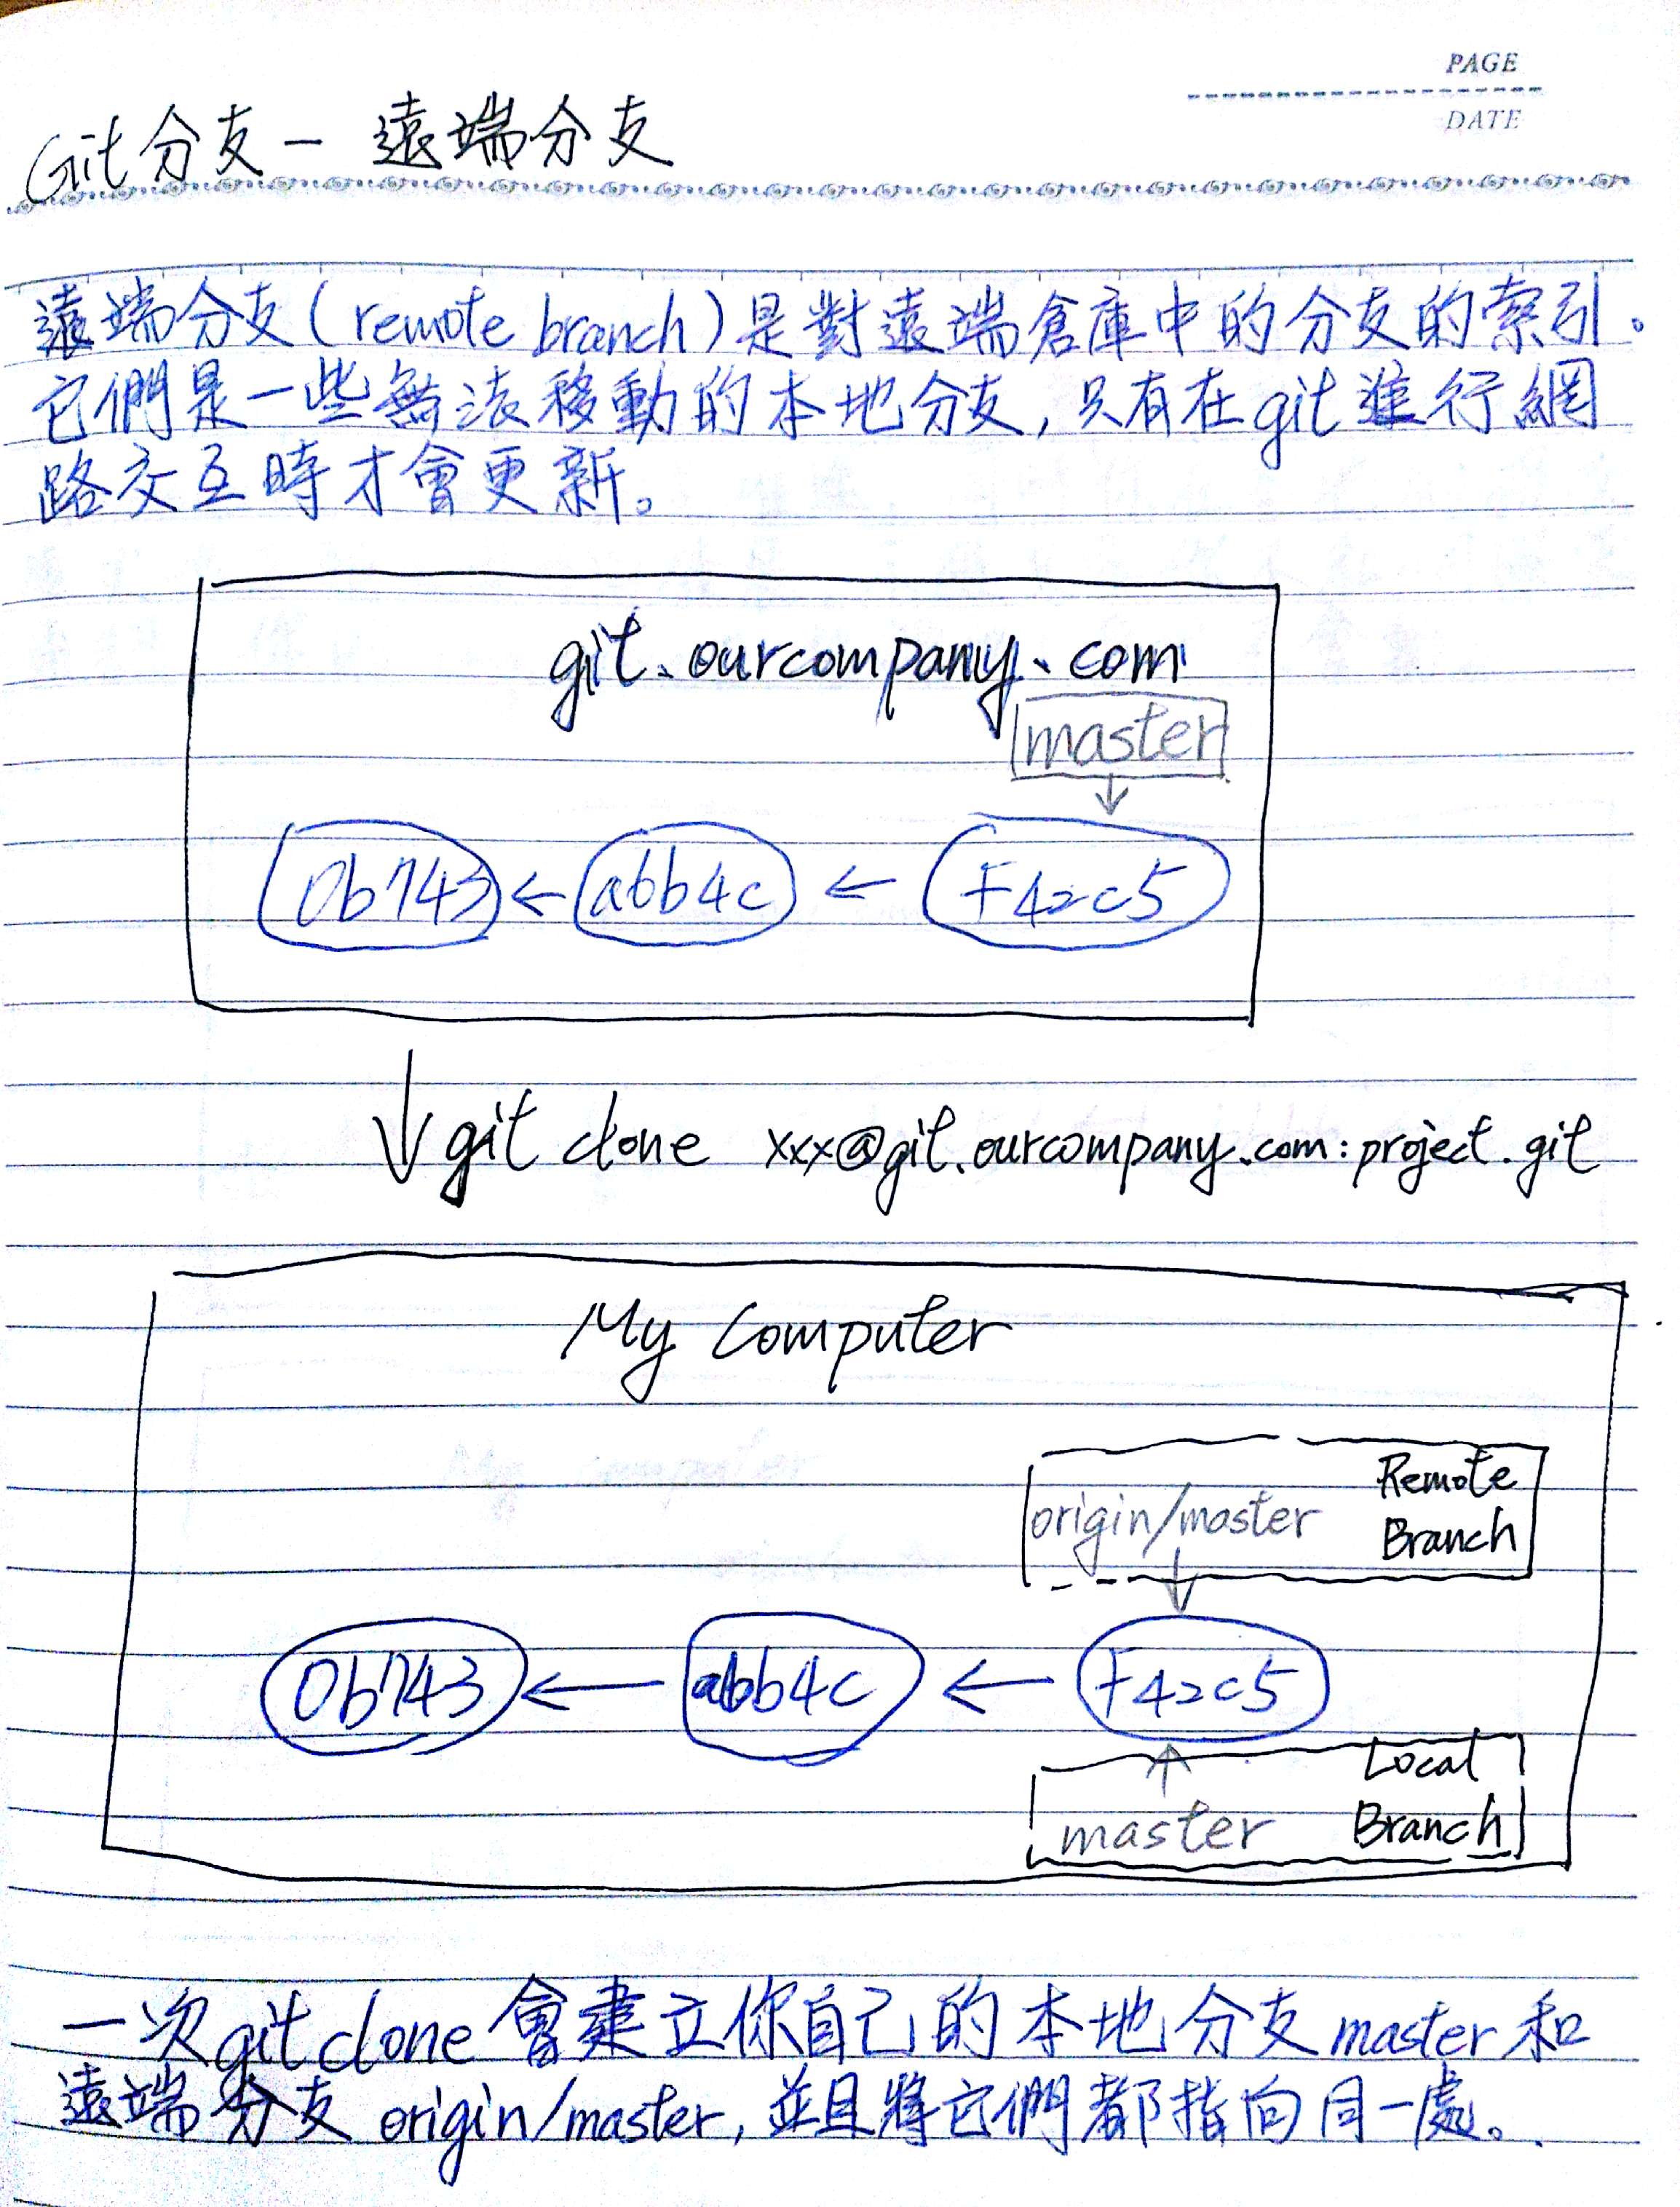 PAGE
DATE
Git分支 - 遠端分支
遠端分支(remote branch)是對遠端倉庫中的分支的索引。
它們是一些無法移動的本地分支,只有在git進行網
路交互時才會更新。
git.ourcompany.com
master
0b743 ← a6b4c ← F42c5
↓ git clone xxx@git.ourcompany.com:project.git
My Computer
Remote
origin/master Branch
0b743 ← a6b4c ← F42c5
Local
master Branch
一次git clone會建立你自己的本地分支master和
遠端分支origin/master,並且將它們都指向同一處。